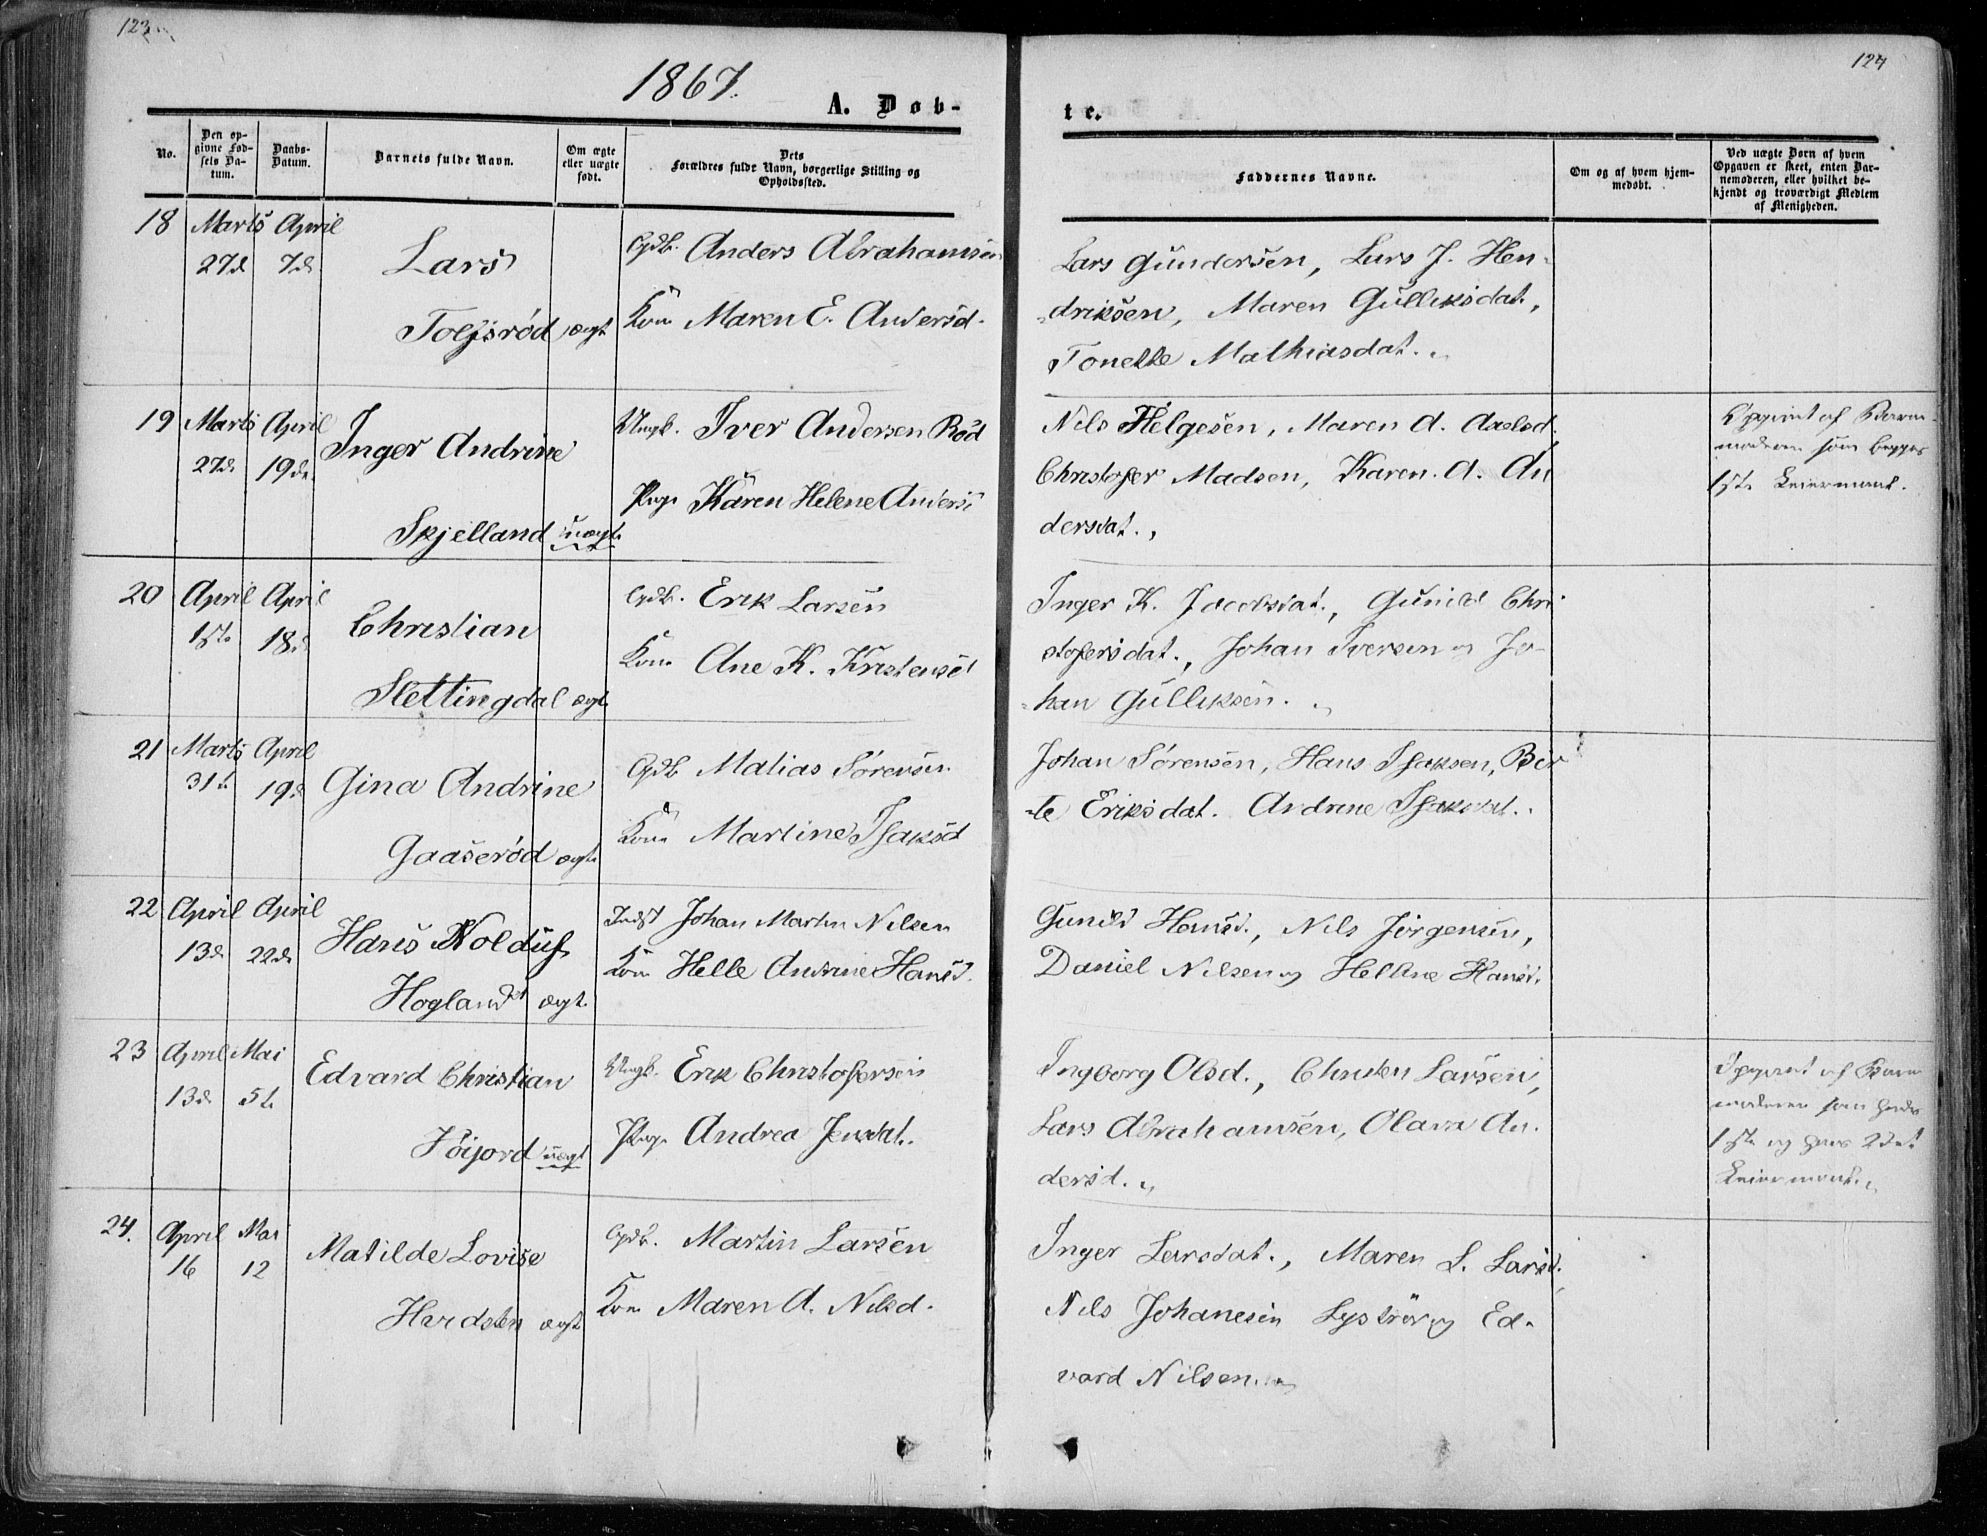 123
124
1867.
A. Døb-
te.
No.
Den op-
givne Fød-
sels Da-
tum.
Daabs-
Datum.
Barnets fulde Navn.
Om ægte
eller uægte
født.
Dets
Forældres fulde Navn, borgerlige Stilling og
Opholdssted.
Faddernes Navne.
Om og af hvem hjem-
medøbt.
Ved uægte Børn af hvem
Opgaven er skeet, enten Bar-
nemoderen, eller hvilket be-
kjendt og troværdigt Medlem
af Menigheden.
18 Marts April
27d 7d
Lars
ægt
Gdb. Anders Abrahamsen
Kone Maren E. Andersd.
Lars Gundersen, Lars J. Hen-
driksen, Maren Gulliksdat.,
Tonette Mathiasdat.
19 Marts April
27d 19de
Inger Andrine
Skjelland uægt
Ungk. Iver Andersen Rød
Pige Karen Helene Andersd
Nils Helgesen, Maren A. Axelsd.
Christofer Madsen, Karen A. An
dersdat.,
Opgivet af Barne-
moderen som begges
1ste Leiermaal.
20 April April
1ste 18d
Christian
Slettingdal ægt
Gdb. Erik Larsen
Kone Ane K. Kristensd
Inger K. Jacobsdat., Gunild Chri
stofersdat., Johan Iversen og Jo-
han Gulliksen.
21 Marts April
31t 19d
Gina Andrine
Gaaserød ægt
Gdb Matias Sørensen
Kone Martine Isaksd
Johan Sørensen, Hans Isaksen, Bir
te Eriksdat. Andrine Isaksdat.
22 April April
13d 22d
Hans Noldus
Hogland ægt.
Indst Johan Martin Nilsen
Kone Helle Andrine Hansd.
Gunild Hansd., Nils Jørgensen,
Daniel Nilsen og Helline Hansd.
23 April Mai
13d 5t
Edvard Christian
Føijord uægt
Ungk. Erik Christofersen
Pige Andrea Jensdat.
Ingborg Olsd., Christen Larsen,
Lars Abrahamsen, Olava An-
dersd.
Opgivet af Barne
moderen som hendes
1ste og hans 2det
Leiermaal.
24. April Mai
16 12
Matilde Lovise
Hvidsten ægt
Gdb. Martin Larsen
Kone Maren A. Nilsd.
Inger Larsdat., Maren L. Larsd.
Nils Johanesen og Ed-
vard Nilsen.